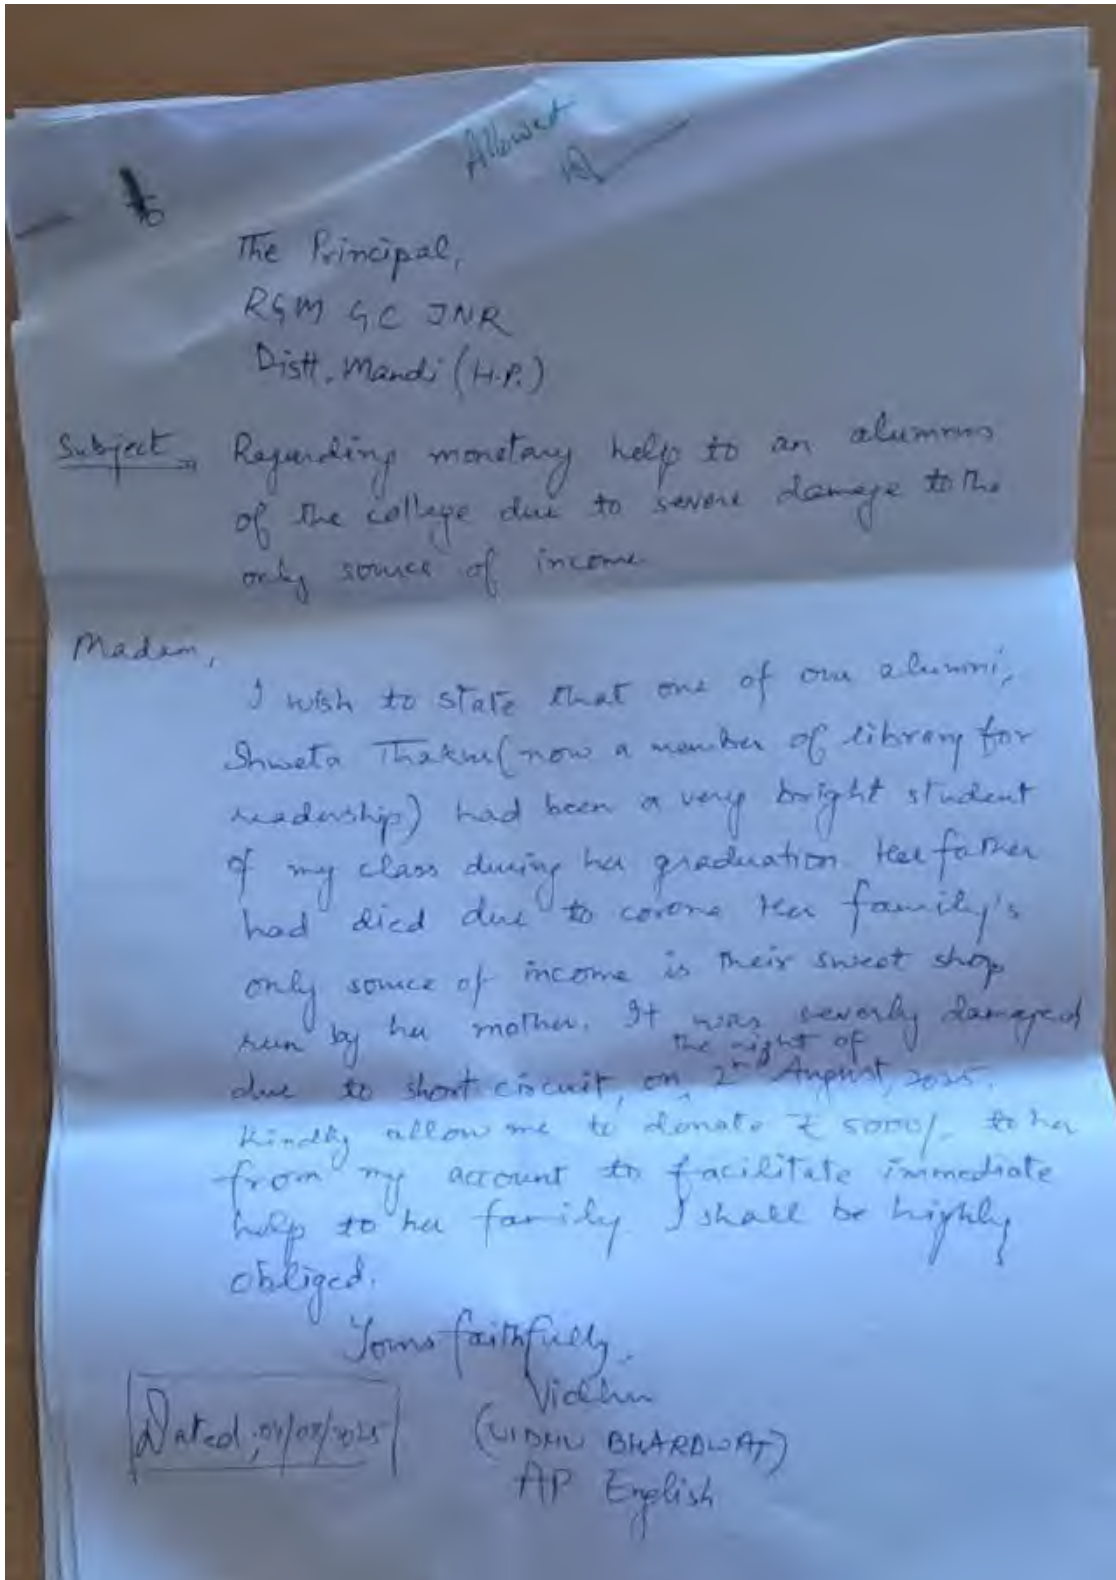 Allowed
To
The Principal,
RGM GC JNR
Distt. Mandi (H.P.)
Subject Regarding monetary help to an alumnus
of the college due to severe damage to the
only source of income
Madam,
I wish to state that one of our alumni,
Shweta Thakur (now a member of library for
readership) had been a very bright student
of my class during her graduation. Her father
had died due to corona Her family's
only source of income is their sweet shop
run by her mother. It was severly damaged
the night of
due to short circuit, on 2nd August, 2025.
Kindly allow me to donate ₹ 5000/- to her
from my account to facilitate immediate
help to her family. I shall be highly
obliged.
Yours faithfully,
Vidhu
(VIDHU BHARDWAJ)
AP English
Dated, 04/08/2025